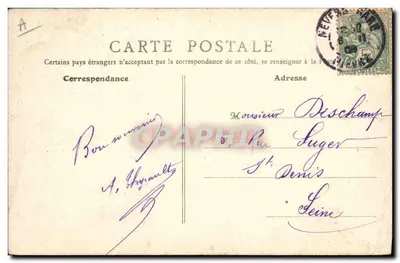 A
CARTE POSTALE
NEVERS GARE
NIEVRE
Certains pays étrangers n'acceptant pas la correspondance de ce côté, se renseigner à la
Correspondance
Adresse
Bon souvenir
A.
Monsieur Deschamp
5 Rue Suger
St Denis
Seine
CPARAMA